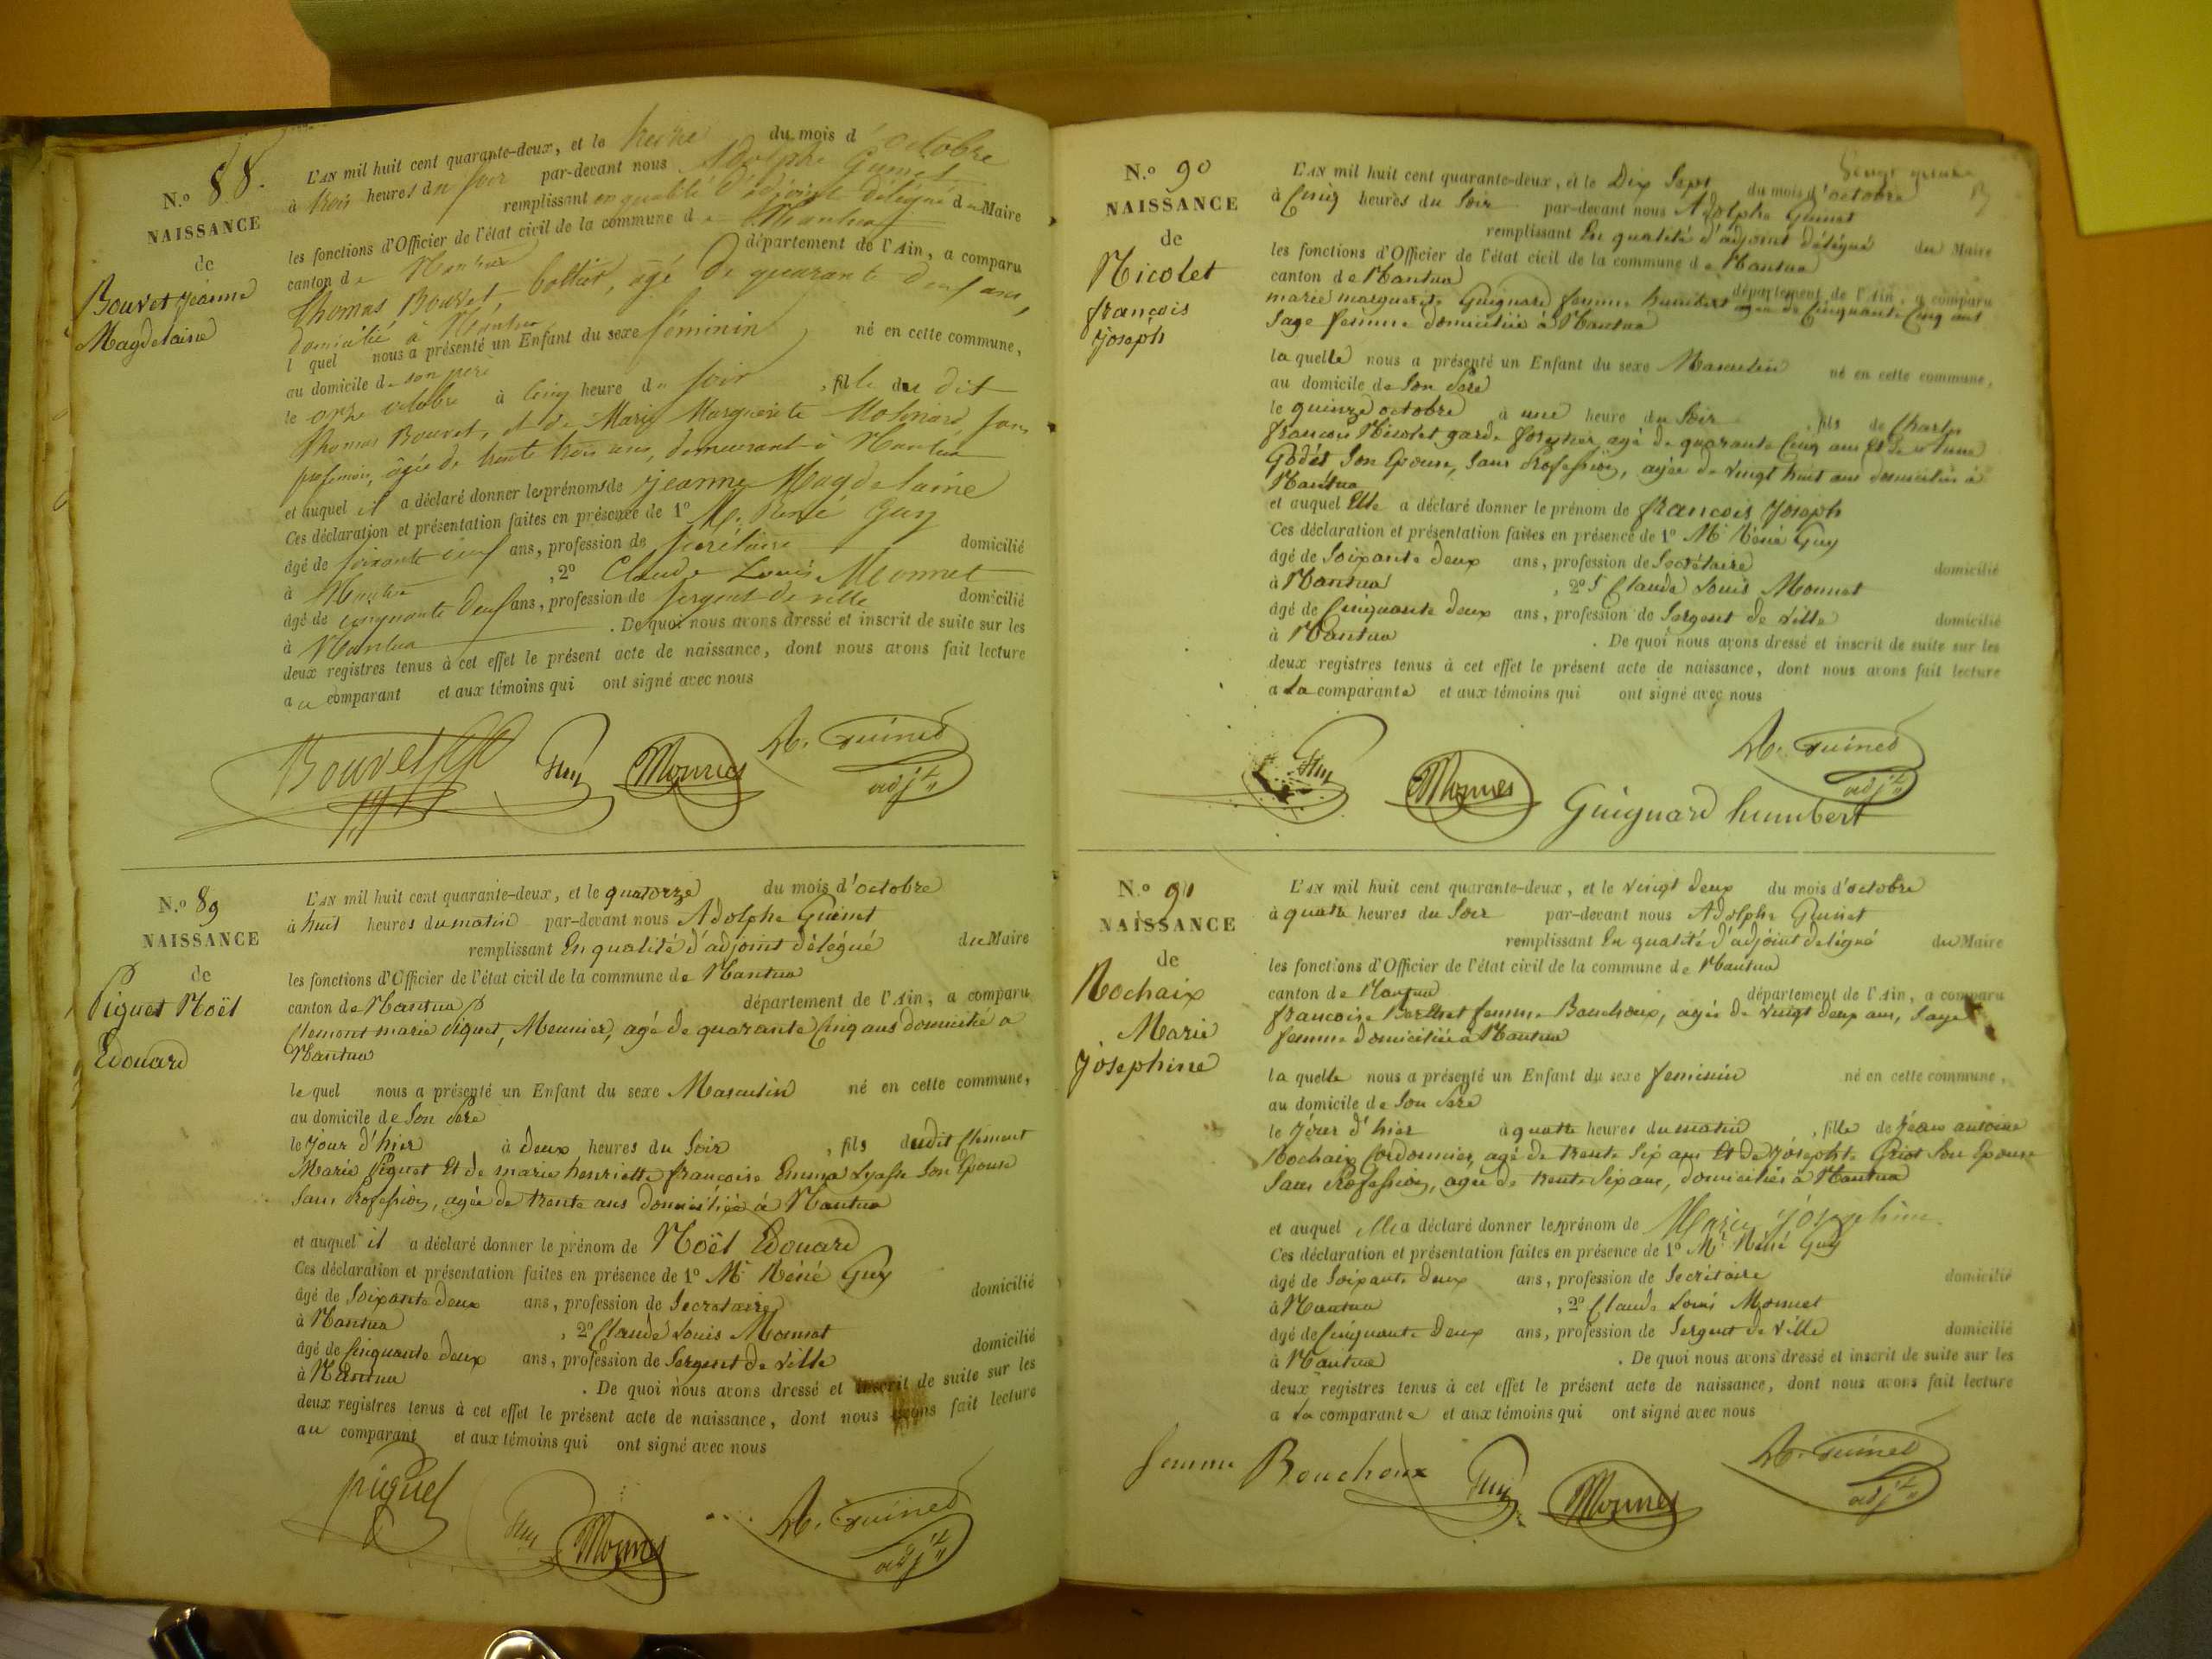 N.º 88.
NAISSANCE
de
Bouvet Jeanne
Magdelaine
L'AN mil huit cent quarante-deux, et le treize du mois d'octobre
à trois heures du soir par-devant nous Adolphe Guinet
remplissant en qualité d'adjoint délégué du Maire
les fonctions d'Officier de l'état civil de la commune de Nantua
canton de Nantua département de l'Ain, a comparu
Thomas Bouvet, âgé de quarante deux ans,
domicilié à Nantua
lequel nous a présenté un Enfant du sexe féminin, né en cette commune,
au domicile de son père
le onze octobre à cinq heure du soir, fille du dit
Thomas Bouvet, et de Marie Marguerite sans
profession, âgée de trente trois ans, demeurant à Nantua
et auquel il a déclaré donner les prénoms de Jeanne Magdelaine
Ces déclaration et présentation faites en présence de 1º M. René Guy
âgé de soixante deux ans, profession de secrétaire domicilié
à Nantua, 2º Claude Louis Monnet
âgé de cinquante deux ans, profession de sergent de ville domicilié
à Nantua. De quoi nous avons dressé et inscrit de suite sur les
deux registres tenus à cet effet le présent acte de naissance, dont nous avons fait lecture
au comparant et aux témoins qui ont signé avec nous
Bouvet Guy Monnet A. Guinet
adj.t
N.º 89
NAISSANCE
de
Piquet Noël
Edouard
L'AN mil huit cent quarante-deux, et le quatorze du mois d'octobre
à huit heures du matin par-devant nous Adolphe Guinet
remplissant En qualité d'adjoint délégué du Maire
les fonctions d'Officier de l'état civil de la commune de Nantua
canton de Nantua département de l'Ain, a comparu
Clement marie Piquet, Meunier, agé de quarante Cinq ans domicilié a
Nantua
le quel nous a présenté un Enfant du sexe Masculin né en cette commune,
au domicile de Son Père
le Jour d'hier à deux heures du Soir, fils dudit Clément
Marie Piquet Et de marie henriette françoise Emma Son Epouse
Sans Profession, agée de trente ans domiciliée à Nantua
et auquel il a déclaré donner le prénom de Noël Edouard
Ces déclaration et présentation faites en présence de 1º Mr Réné Guy
âgé de Soixante deux ans, profession de Secretaire domicilié
à Nantua, 2º Claude Louis Monnet
âgé de Cinquante deux ans, profession de Sergent de Ville domicilié
à Nantua. De quoi nous avons dressé et inscrit de suite sur les
deux registres tenus à cet effet le présent acte de naissance, dont nous avons fait lecture
au comparant et aux témoins qui ont signé avec nous
piquet Guy Monnet A. Guinet
adj.t
N.º 90
NAISSANCE
de
Nicolet
françois
Joseph
L'AN mil huit cent quarante-deux, et le Dix Sept du mois d'octobre
à Cinq heures du Soir par-devant nous Adolphe Guinet
remplissant En qualité d'adjoint délégué du Maire
les fonctions d'Officier de l'état civil de la commune de Nantua
canton de Nantua département de l'Ain, a comparu
marie marguerite Guignard femme humbert agée de Cinquante Cinq ans
Sage femme domiciliée à Nantua
la quelle nous a présenté un Enfant du sexe Masculin né en cette commune,
au domicile de Son Père
le quinze octobre à une heure du Soir, fils de Charles
françois Nicolet garde forestier, agé de quarante Cinq ans Et de
Godet Son Epouse, Sans Profession, agée de vingt huit ans domiciliés à
Nantua
et auquel Elle a déclaré donner le prénom de françois Joseph
Ces déclaration et présentation faites en présence de 1º Mr Réné Guy
âgé de Soixante deux ans, profession de Secrétaire domicilié
à Nantua, 2º Claude Louis Monnet
âgé de Cinquante deux ans, profession de Sergent de Ville domicilié
à Nantua. De quoi nous avons dressé et inscrit de suite sur les
deux registres tenus à cet effet le présent acte de naissance, dont nous avons fait lecture
a la comparante et aux témoins qui ont signé avec nous
Guy Monnet A. Guinet
adj.t
Guignard humbert
N.º 91
NAISSANCE
de
Rochaix
Marie
Joséphine
L'AN mil huit cent quarante-deux, et le Vingt deux du mois d'octobre
à quatre heures du Soir par-devant nous Adolphe Guinet
remplissant En qualité d'adjoint delégué du Maire
les fonctions d'Officier de l'état civil de la commune de Nantua
canton de Nantua département de l'Ain, a comparu
françoise femme Bouchoux, agée de Vingt deux ans, Sage
femme domiciliée a Nantua
la quelle nous a présenté un Enfant du sexe feminin né en cette commune,
au domicile de Son Père
le Jour d'hier à quatre heures du matin, fille de Jean antoine
Rochaix Cordonnier, agé de trente Six ans Et de Josephte Son Epouse
Sans Profession, agée de trente Six ans, domiciliés à Nantua
et auquel elle a déclaré donner les prénom de Marie Joséphine.
Ces déclaration et présentation faites en présence de 1º Mr Réné Guy
âgé de Soixante deux ans, profession de Secrétaire domicilié
à Nantua, 2º Claude Louis Monnet
âgé de Cinquante deux ans, profession de Sergent de Ville domicilié
à Nantua. De quoi nous avons dressé et inscrit de suite sur les
deux registres tenus à cet effet le présent acte de naissance, dont nous avons fait lecture
a la comparante et aux témoins qui ont signé avec nous
femme Bouchoux Guy Monnet A. Guinet
adj.t